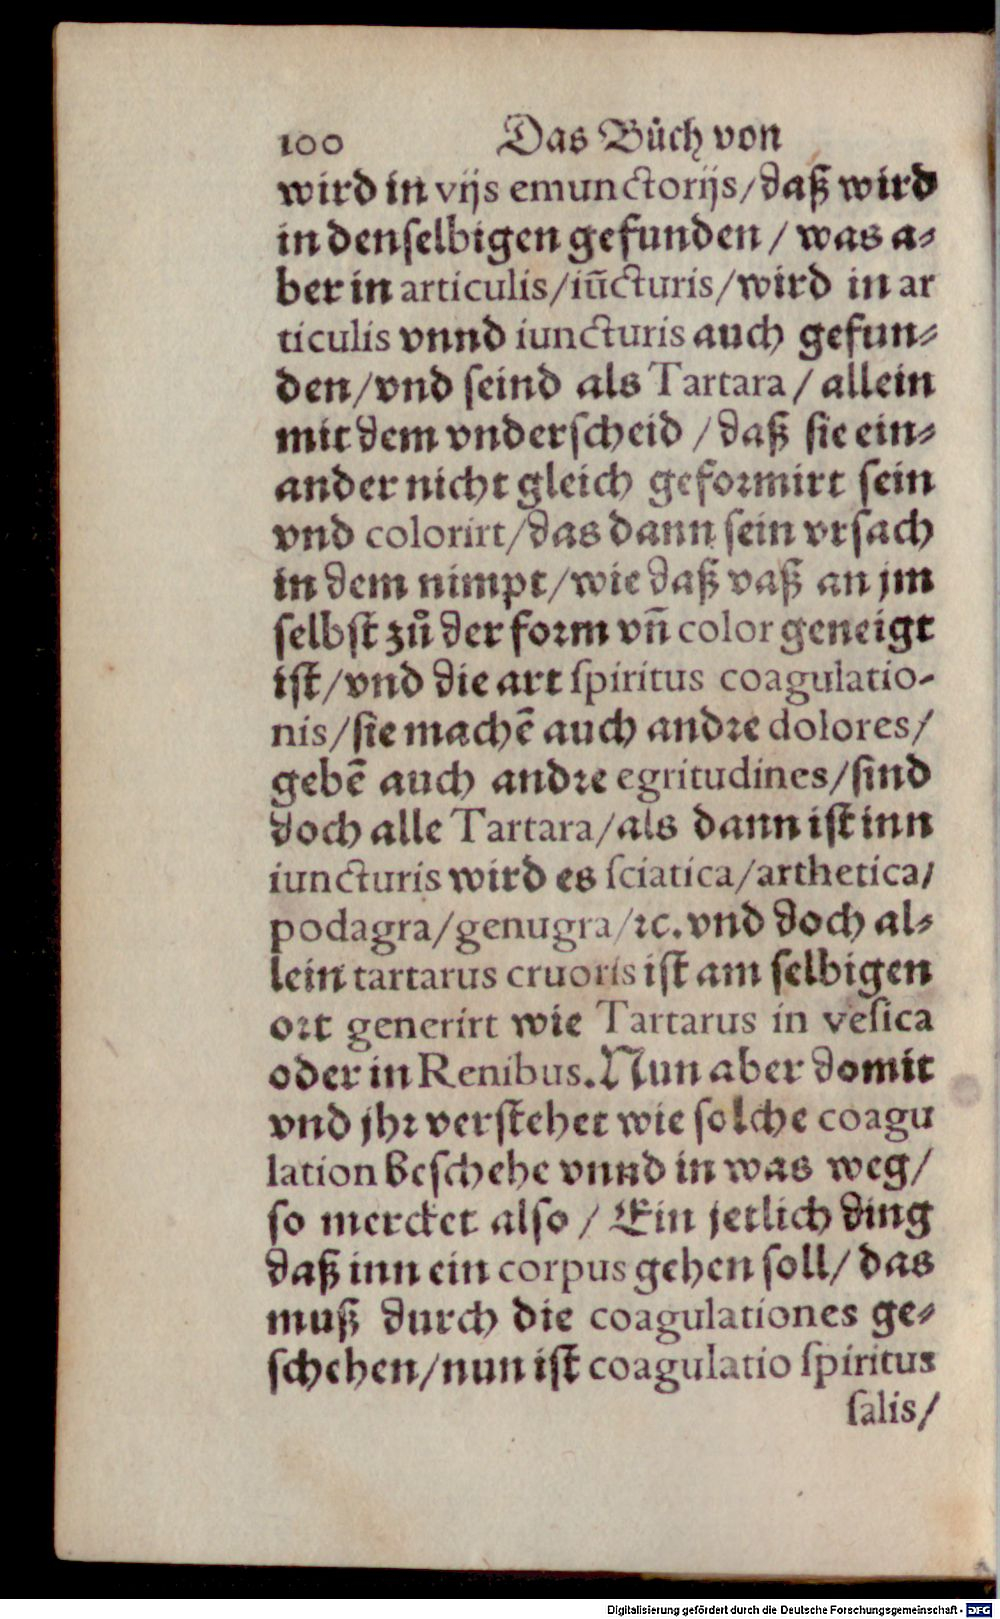 100 Das Bůch von
wird in vijs emunctorijs/daß wird
in denselbigen gefunden/was a⸗
ber in articulis/iūcturis/wird in ar
ticulis vnnd iuncturis auch gefun⸗
den/vnd seind als Tartara/allein
mit dem vnderscheid/daß sie ein⸗
ander nicht gleich geformirt sein
vnd colorirt/das dann sein vrsach
in dem nimpt/wie daß vaß an jm
selbst zů der form vñ color geneigt
ist/vnd die art spiritus coagulatio-
nis/sie machē auch andre dolores/
gebē auch andre egritudines/sind
doch alle Tartara/als dann ist inn
iuncturis wird es sciatica/arthetica/
podagra/genugra/ꝛc.vnd doch al⸗
lein tartarus cruoris ist am selbigen
ort generirt wie Tartarus in vesica
oder in Renibus.Nun aber domit
vnd jhr verstehet wie solche coagu
lation beschehe vnnd in was weg/
so mercket also/Ein jetlich ding
daß inn ein corpus gehen soll/das
muß durch die coagulationes ge⸗
schehen/nun ist coagulatio spiritus
salis/
Digitalisierung gefördert durch die Deutsche Forschungsgemeinschaft - DFG